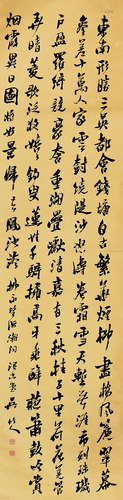 東南形勝三吳都會錢塘自古繁華烟柳畫橋風簾翠幕
參差十萬人家雲樹繞堤沙怒濤卷霜雪天塹無涯市列珠璣
戶盈羅綺競豪奢重湖疊巘清嘉有三秋桂子十里荷花羌管
弄晴菱歌泛夜嬉嬉釣叟蓮娃千騎擁高牙乘醉聽簫鼓吟賞
烟霞異日圖將好景歸去鳳池誇